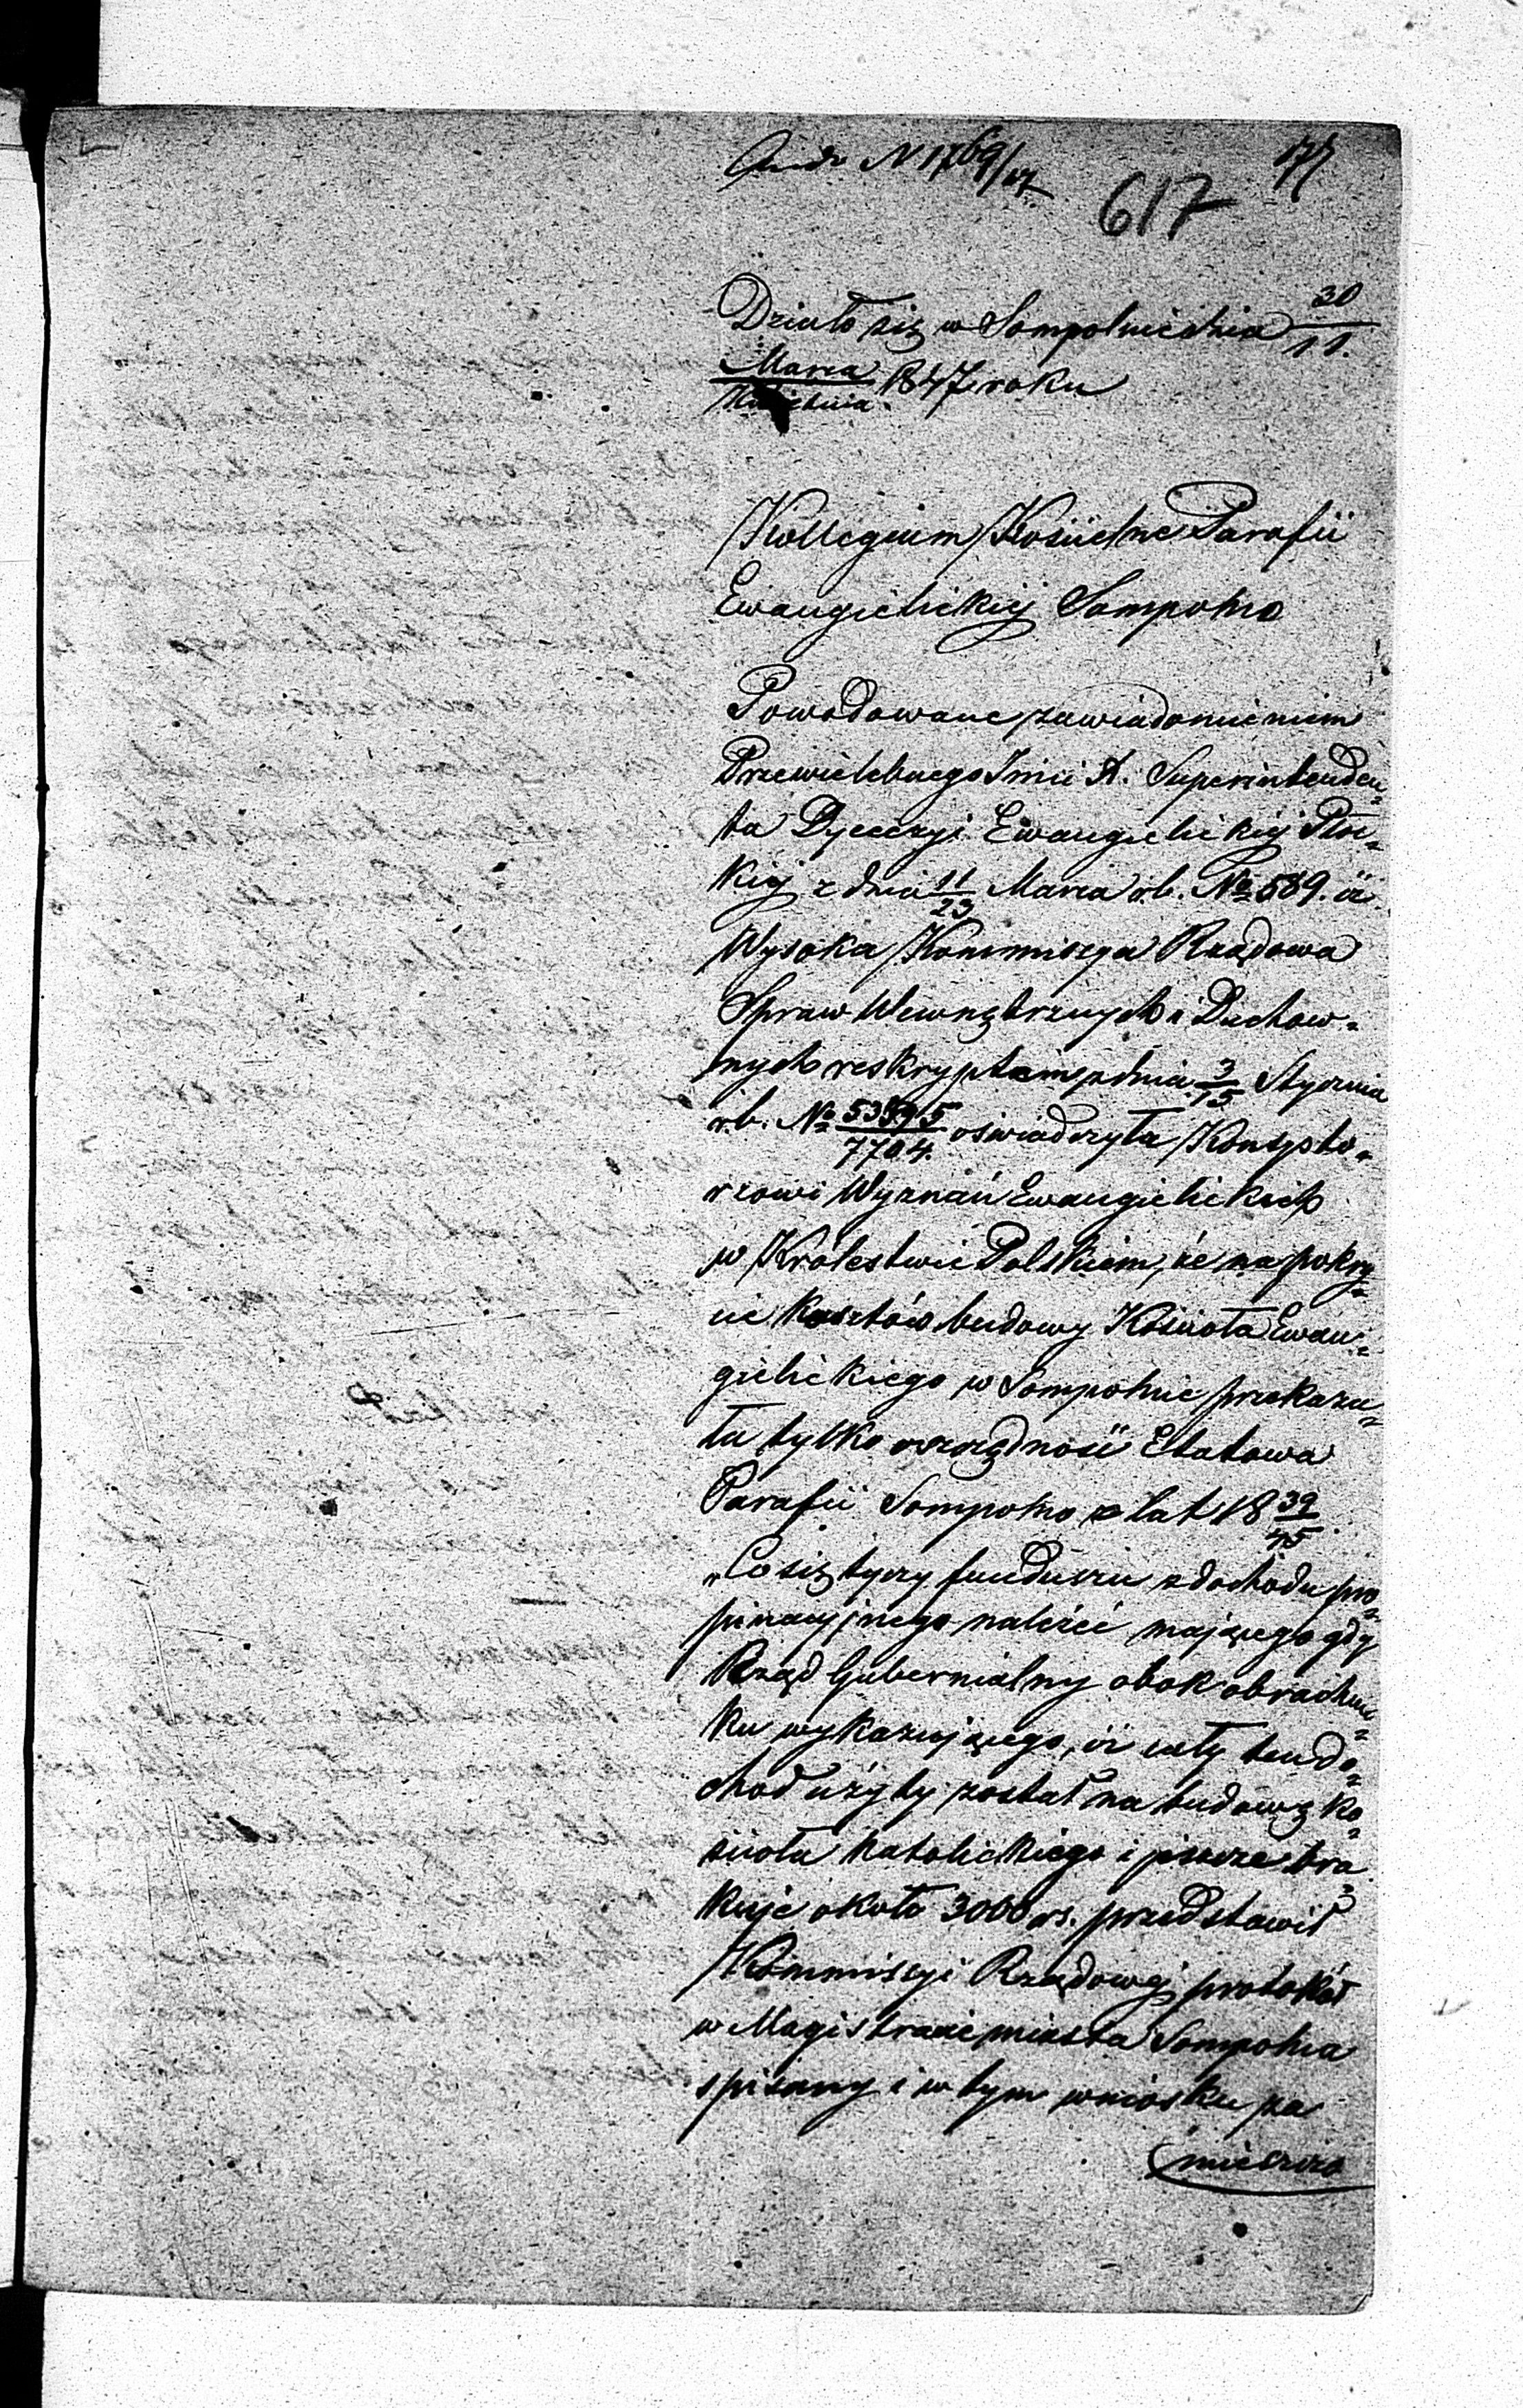 N 1769/47
617
Działo się w Sompolnie dnia 30/11.
Marca/Kwietnia 1847 roku
Kollegium Kościelne Parafii
Ewangielickiéj Sompolno
Powodowane zawiadomieniem
Przewielebnego Jmci X. Superintenden=
ta Dyecezyi Ewangielickiéj Płoc=
kiéj z dnia 11/23 Marca r.b. No 589. iż
Wysoka Kommissya Rządowa
Spraw Wewnętrznych i Duchow=
nych reskryptem z dnia 3/15 Stycznia
r.b. No 53895/7704. oświadczyła Konsysto=
rzowi Wyznań Ewangielickich
w Królestwie Polskiem, że na pokry=
cie kosztów budowy Kościoła Ewan=
gielickiego w Sompolnie przekazu=
ła tylko oszczędność Etatowa
Parafii Sompolno z lat 18 39/45.
„Co się tyczy funduszu z dochodu pro=
pinacyjnego należeć mającego gdy
Rząd Gubernialny obok obrachun=
ku wykazującego, iż cały ten do=
chód użyty został na budowę ko=
ścioła Katolickiego i jeszcze bra=
kuje około 3000 rs. przedstawił
Kommissyi Rządowéj protokół
w Magistracie miasta Sompolna
spisany i w tym wniosku za
mieszcza